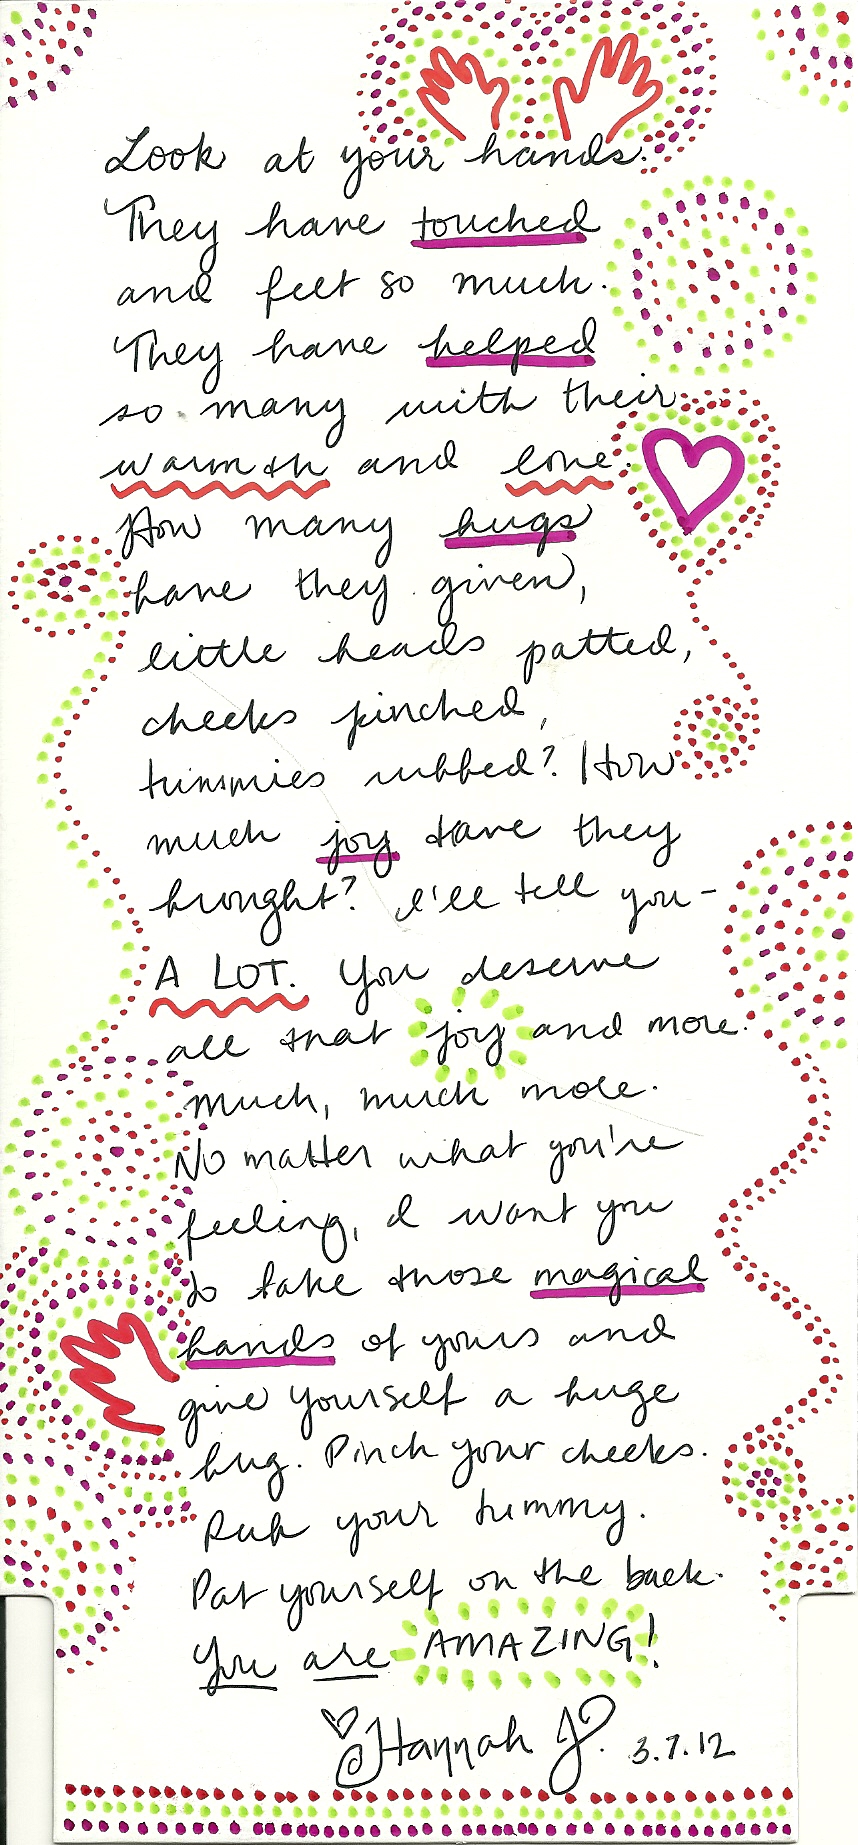 Look at your hands.
They have touched
and felt so much.
They have helped
so many with their
warmth and love.
How many hugs
have they given,
little heads patted,
cheeks pinched,
tummies rubbed? How
much joy have they
brought? I'll tell you-
A LOT. You deserve
all that joy and more.
Much, much more.
No matter what you're
feeling, I want you
to take those magical
hands of yours and
give yourself a huge
hug. Pinch your cheeks.
Rub your tummy.
Pat yourself on the back.
You are AMAZING!
Hannah J. 3.7.12